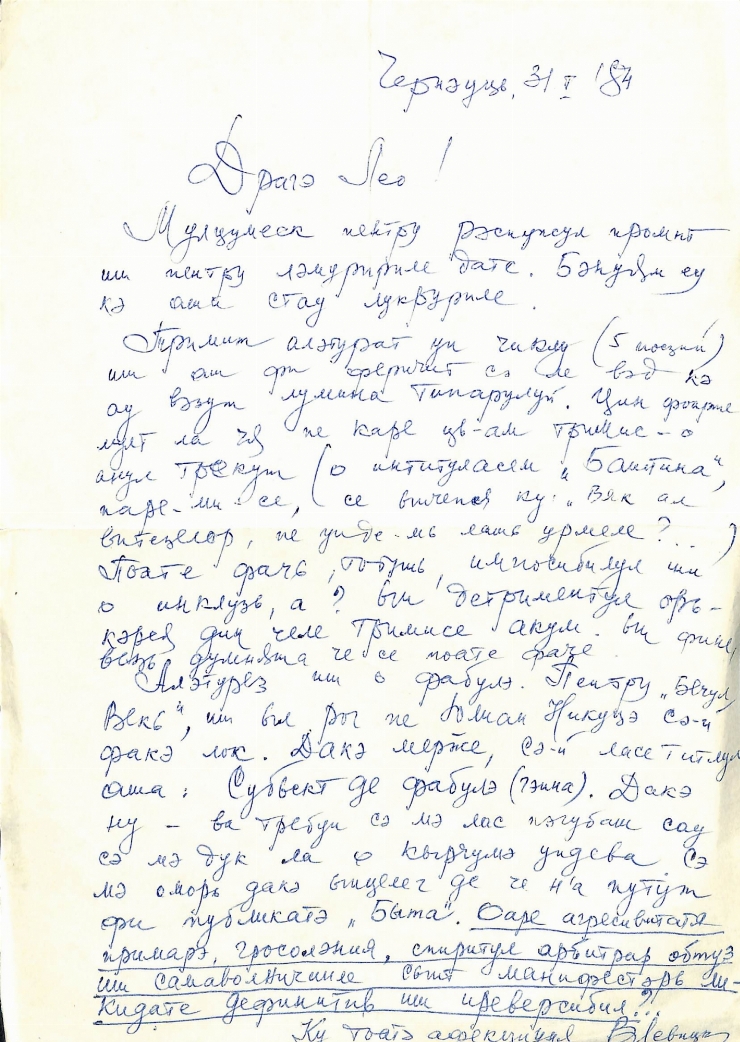 Чернэуць, 31 I '84
Драгэ Лео!
Мулцумеск пентру рэспунсул промпт
ши пентру лэмуририле дате. Бэнуям еу
кэ аша стау лукруриле.
Тримит алэтурат ун чиклу (5 поезий)
ши аш фи феричит сэ ле вэд кэ
ау вэзут лумина типарулуй. Цин фоарте
мулт ла чя пе каре ць-ам тримис-о
анул трекут (о интитуласем „Баштина",
паре-ми-се, се ынчепя ку: „Вяк ал
витезелор, пе унде-мь лашь урмеле?...)
Поате фачь, тотушь, импосибилул ши
о инклузь, а? Ын детриментул орь-
кэрея дин челе тримисе акум. Ын фине,
везь думнята че се поате фаче.
Алэтурез ши о фабулэ. Пентру „Бечул
Векь", ши ыл рог пе Юлиан Никуцэ сэ-й
факэ лок. Дакэ мерже, сэ-й ласе титлул
аша: Субьект де фабулэ (гэина). Дакэ
ну – ва требуи сэ мэ лас пэгубаш сау
сэ мэ дук ла о кырчумэ ундева сэ
мэ оморь дакэ ынцелег де че н'а путут
фи публикатэ „Быта". Оаре агресивитатя
примарэ, гросолэния, спиритул арбитрар обтуз
ши самаволничииле сынт манифестэрь ли-
кидате дефинитив ши иреверсибил?..
Ку тоатэ афекциуня В Левицки